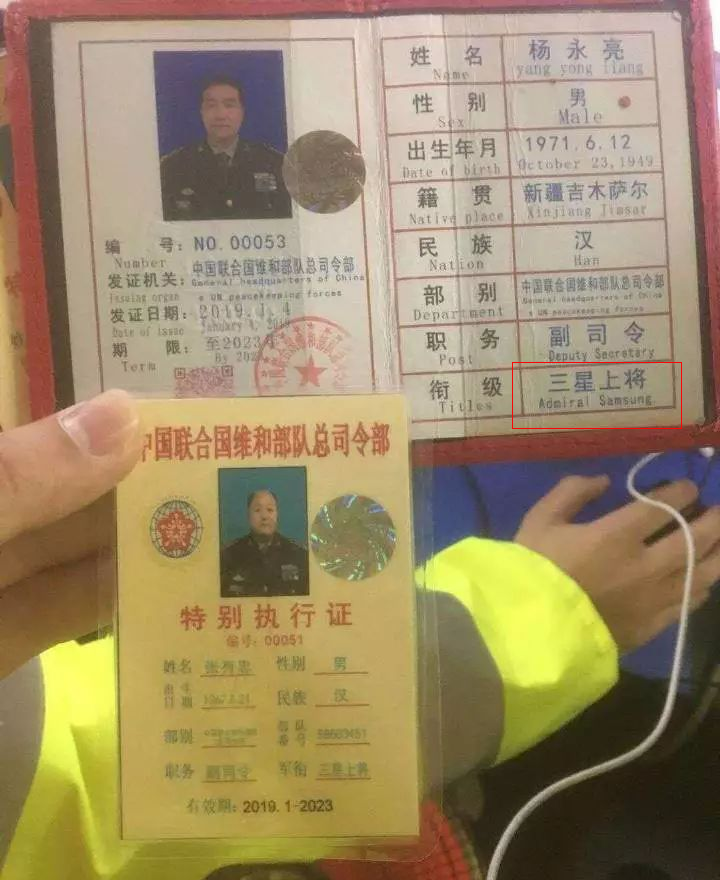 编 号: NO.00053
Number
发证机关: 中国联合国维和部队总司令部
Issuing organ General headquarters of China
s UN peacekeeping forces
发证日期: 2019.1.4
Date of issue January 4, 2019
期 限: 至2023年
Term By 202
姓 名 杨永亮
Name yang yong liang
性 别 男
Sex Male
出生年月 1971.6.12
Date of birth October 23,1949
籍 贯 新疆吉木萨尔
Native place Xinjiang Jimsar
民 族 汉
Nation Han
部 别 中国联合国维和部队总司令部
Department General headquarters of China
s UN peacekeeping forces
职 务 副司令
Post Deputy Secretary
衔 级 三星上将
Titles Admiral Samsung
中国联合国维和部队总司令部
特别执行证
编号: 00051
姓名 张有忠 性别 男
出生日期 民族 汉
部别 部队番号
职务 副司令 军衔 三星上将
有效期: 2019.1-2023